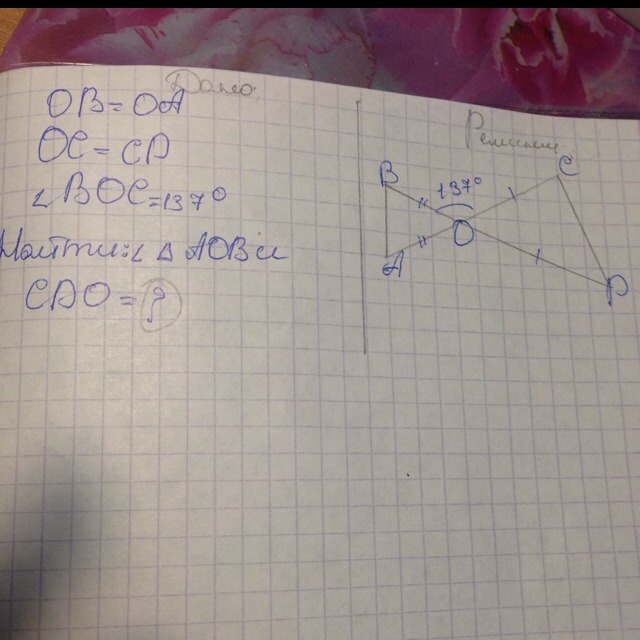 Дано:
OB = OA
OC = CD
∠BOC = 137°
Найти: ∠ △ AOB и
CDO = ?
Решение
B
137°
C
O
A
D